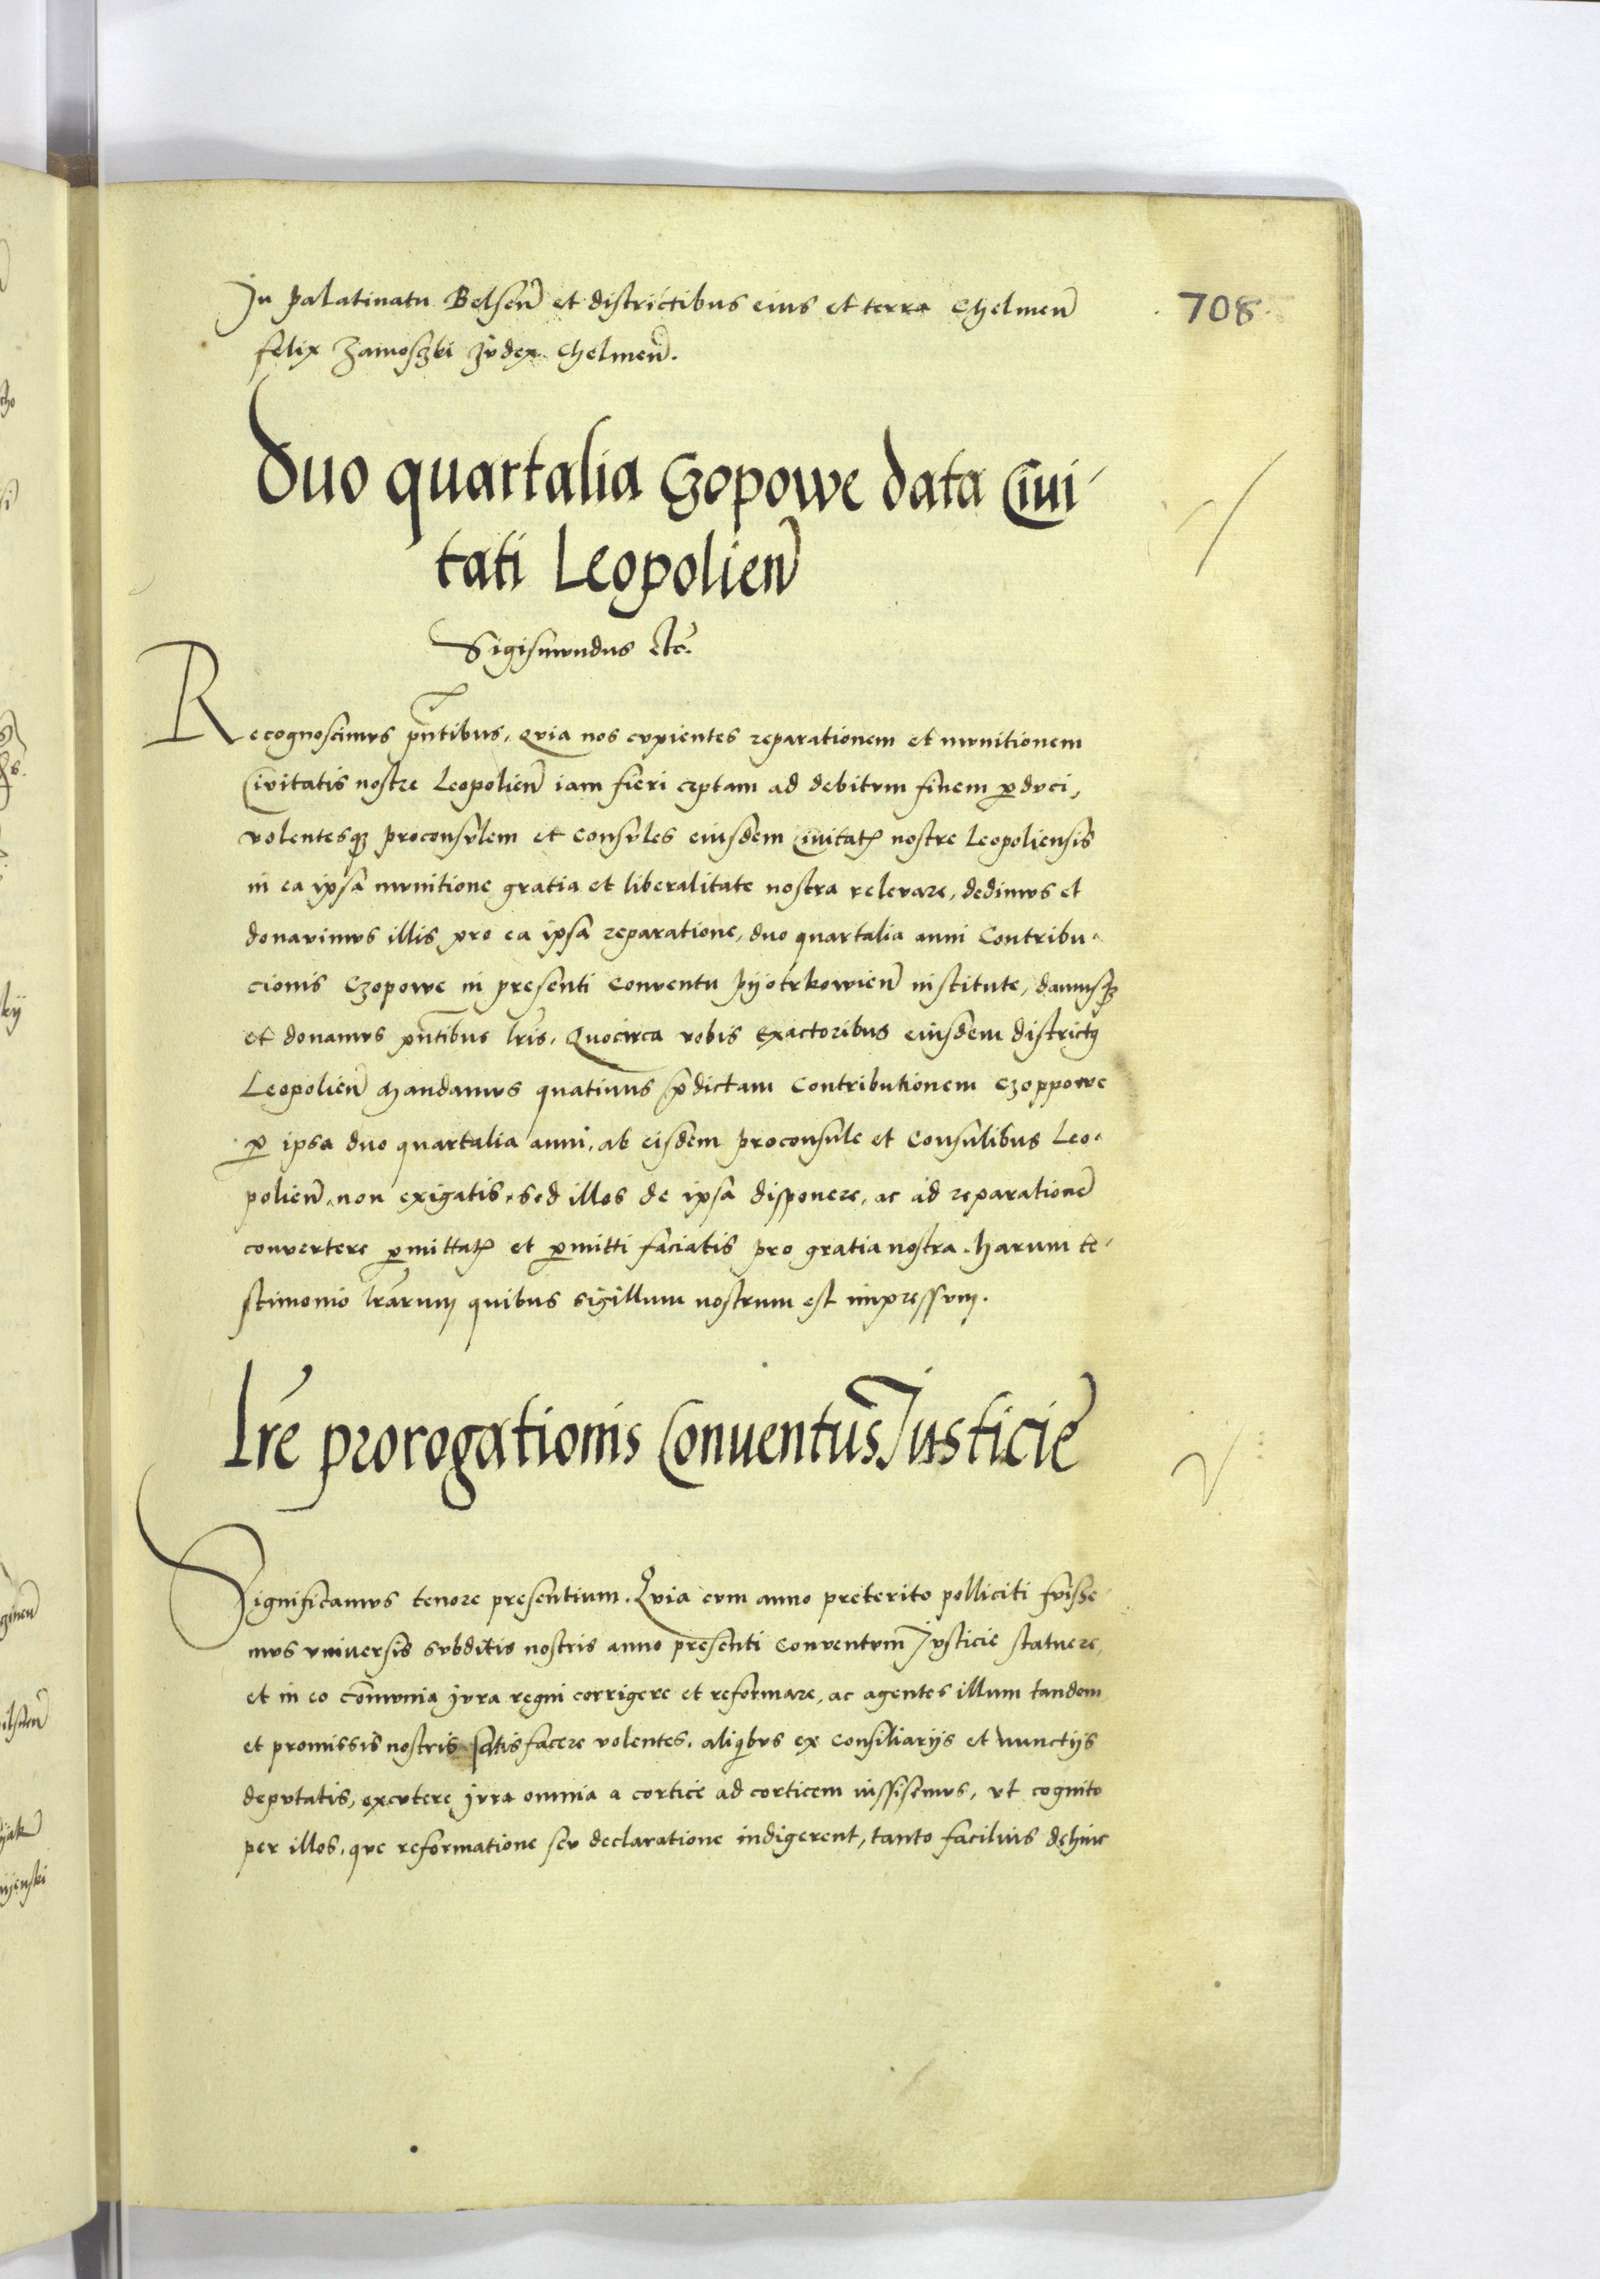 708
In palatinatu Belsen̄ et districtibus eius et terra Chelmen̄
felix Zamoszki Judex Chelmen̄.
Duo quartalia Czopowe data Ciui-
tati Leopolien̄
Sigismundus etc.
Recognoscimus pn̄tibus, Quia nos cupientes reparationem et munitionem
Ciuitatis nostre Leopolien̄ iam fieri ceptam ad debitum finem ꝑduci,
volentesqꝫ proconsulem et Consules eiusdem Ciuitatꝭ nostre Leopoliensis
in ea ipsa munitione gratia et liberalitate nostra relevare, dedimus et
donavimus illis pro ea ipsa reparatione, duo quartalia anni Contribu-
cionis Czopowe in presenti conventu pijotrkowien̄ institute, damusqꝫ
et donamus pn̄tibus lr̄is. Quocirca vobis Exactoribus eiusdem districtꝰ
Leopolien̄ Mandamus quatinus p̄dictam Contributionem Czoppowe
ꝑ ipsa duo quartalia anni, ab eisdem proconsule et Consulibus Leo-
polien̄, non exigatis, sed illos de ipsa disponere, ac ad reparationē
convertere ꝑmittatꝭ et ꝑmitti faciatis pro gratia nostra. harum te-
stimonio lr̄arum quibus sigillum nostrum est impressum.
Lr̄e prorogationis Conuentus Justicie
Significamus tenore presentium. Quia cum anno preterito polliciti fuisse-
mus universis subditis nostris anno presenti Conventum Justicie statuere,
et in eo cōmunia jura regni corrigere et reformare, ac agentes illum tandem
et promissis nostris satisfacere volentes, aliqibus ex Consiliarijs et Nunctijs
deputatis, excutere jura omnia a cortice ad corticem iussisemus, ut cognito
per illos, que reformatione seu declaratione indigerent, tanto facilius dehinc